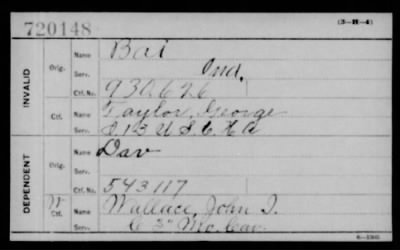 720148
(3-H-4)
INVALID
Orig.
Name Bai
Serv. Ind.
Ctf. No. 930626
Ctf.
Name Taylor, George
Serv. I 13 U.S.C.H.A
DEPENDENT
Orig.
Name Dav
Serv.
Ctf. No. 543117
W
Ctf.
Name Wallace, John I.
Serv. C 3" Mo. Cav.